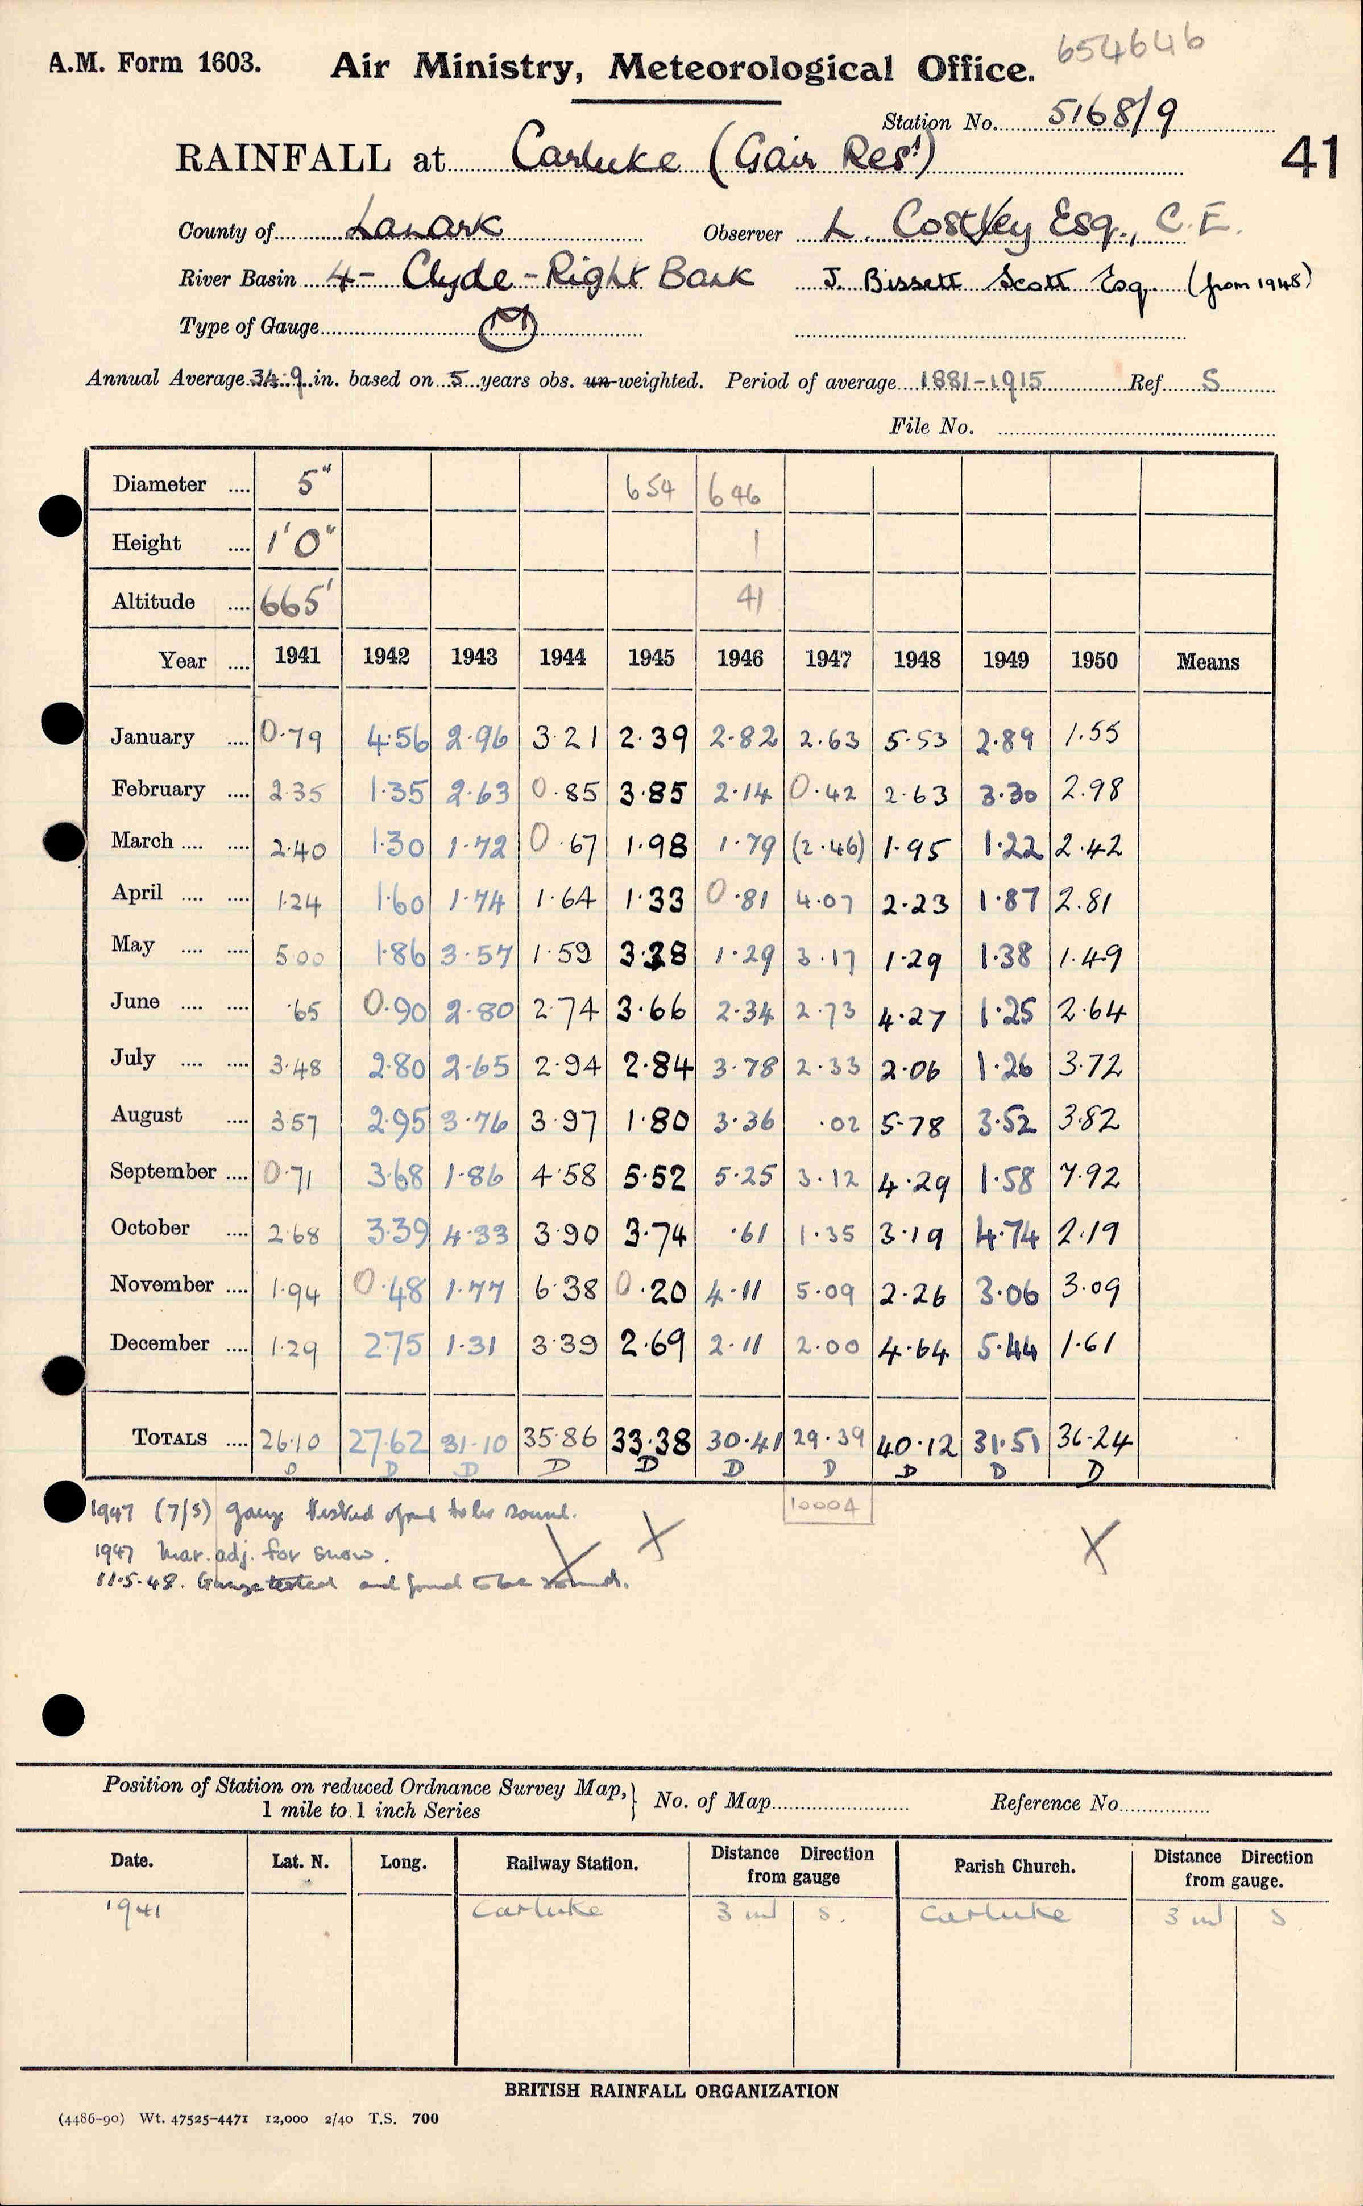 654646
A.M. Form 1603. Air Ministry, Meteorological Office.
Station No. 5168/9
RAINFALL at Carluke (Gair Resr) 41
County of Lanark Observer L. Costley Esq., C.E.
River Basin 4 - Clyde - Right Bank J. Bissett Scott Esq. (from 1948)
Type of Gauge M
Annual Average 34.9 in. based on 5 years obs. un-weighted. Period of average 1881-1915 Ref. S
File No.
Diameter .... 5" 654 646
Height .... 1'0" 1
Altitude .... 665' 41
Year .... 1941 1942 1943 1944 1945 1946 1947 1948 1949 1950 Means
January .... 0.79 4.56 2.96 3.21 2.39 2.82 2.63 5.53 2.89 1.55
February .... 2.35 1.35 2.63 0.85 3.85 2.14 0.42 2.63 3.30 2.98
March .... .... 2.40 1.30 1.72 0.67 1.98 1.79 (2.46) 1.95 1.22 2.42
April .... .... 1.24 1.60 1.74 1.64 1.33 0.81 4.07 2.23 1.87 2.81
May .... .... 5.00 1.86 3.57 1.59 3.38 1.29 3.17 1.29 1.38 1.49
June .... .... .65 0.90 2.80 2.74 3.66 2.34 2.73 4.27 1.25 2.64
July .... .... 3.48 2.80 2.65 2.94 2.84 3.78 2.33 2.06 1.26 3.72
August .... 3.57 2.95 3.76 3.97 1.80 3.36 .02 5.78 3.52 3.82
September .... 0.71 3.68 1.86 4.58 5.52 5.25 3.12 4.29 1.58 7.92
October .... 2.68 3.39 4.33 3.90 3.74 .61 1.35 3.19 4.74 2.19
November .... 1.94 0.48 1.77 6.38 0.20 4.11 5.09 2.26 3.06 3.09
December .... 1.29 2.75 1.31 3.39 2.69 2.11 2.00 4.64 5.44 1.61
TOTALS .... 26.10 27.62 31.10 35.86 33.38 30.41 29.39 40.12 31.51 36.24
D D D D D D D D D D
1947 (7/5) gauge tested & found to be sound. 10004
1947 Mar. adj. for snow. X X X
11.5.48. Gauge tested and found to be sound.
Position of Station on reduced Ordnance Survey Map, 1 mile to 1 inch Series } No. of Map Reference No
Date. Lat. N. Long. Railway Station. Distance Direction from gauge Parish Church. Distance Direction from gauge.
1941 Carluke 3 ml S. Carluke 3 ml S
BRITISH RAINFALL ORGANIZATION
(4486-90) Wt. 47525-4471 12,000 2/40 T.S. 700